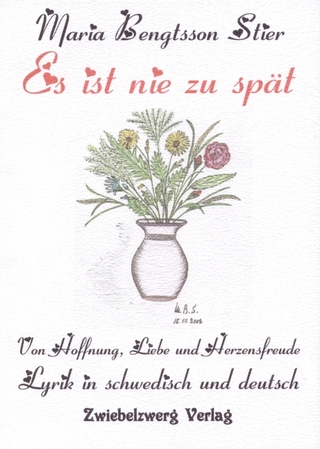 Maria Bengtsson Stier
Es ist nie zu spät
M.B.S.
Von Hoffnung, Liebe und Herzensfreude
Lyrik in schwedisch und deutsch
Zwiebelzwerg Verlag